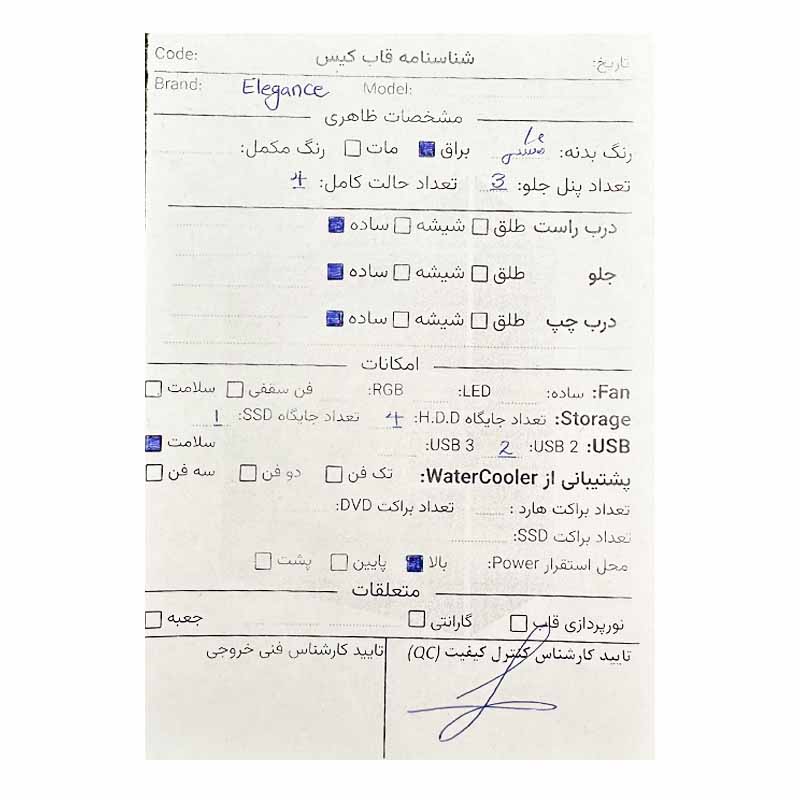 Code: شناسنامه قاب کیس تاریخ:
Brand: Elegance Model:
مشخصات ظاهری
رنگ بدنه: مشکی براق مات رنگ مکمل:
تعداد پنل جلو: 3 تعداد حالت کامل: 4
درب راست طلق شیشه ساده
جلو طلق شیشه ساده
درب چپ طلق شیشه ساده
امکانات
Fan: ساده: LED: RGB: فن سقفی سلامت
Storage: تعداد جایگاه H.D.D: 4 تعداد جایگاه SSD: 1
USB: USB 2: 2 USB 3: سلامت
پشتیبانی از WaterCooler: تک فن دو فن سه فن
تعداد براکت هارد : تعداد براکت DVD:
تعداد براکت SSD:
محل استقرار Power: بالا پایین پشت
متعلقات
نورپردازی قاب گارانتی جعبه
تایید کارشناس کنترل کیفیت (QC) تایید کارشناس فنی خروجی